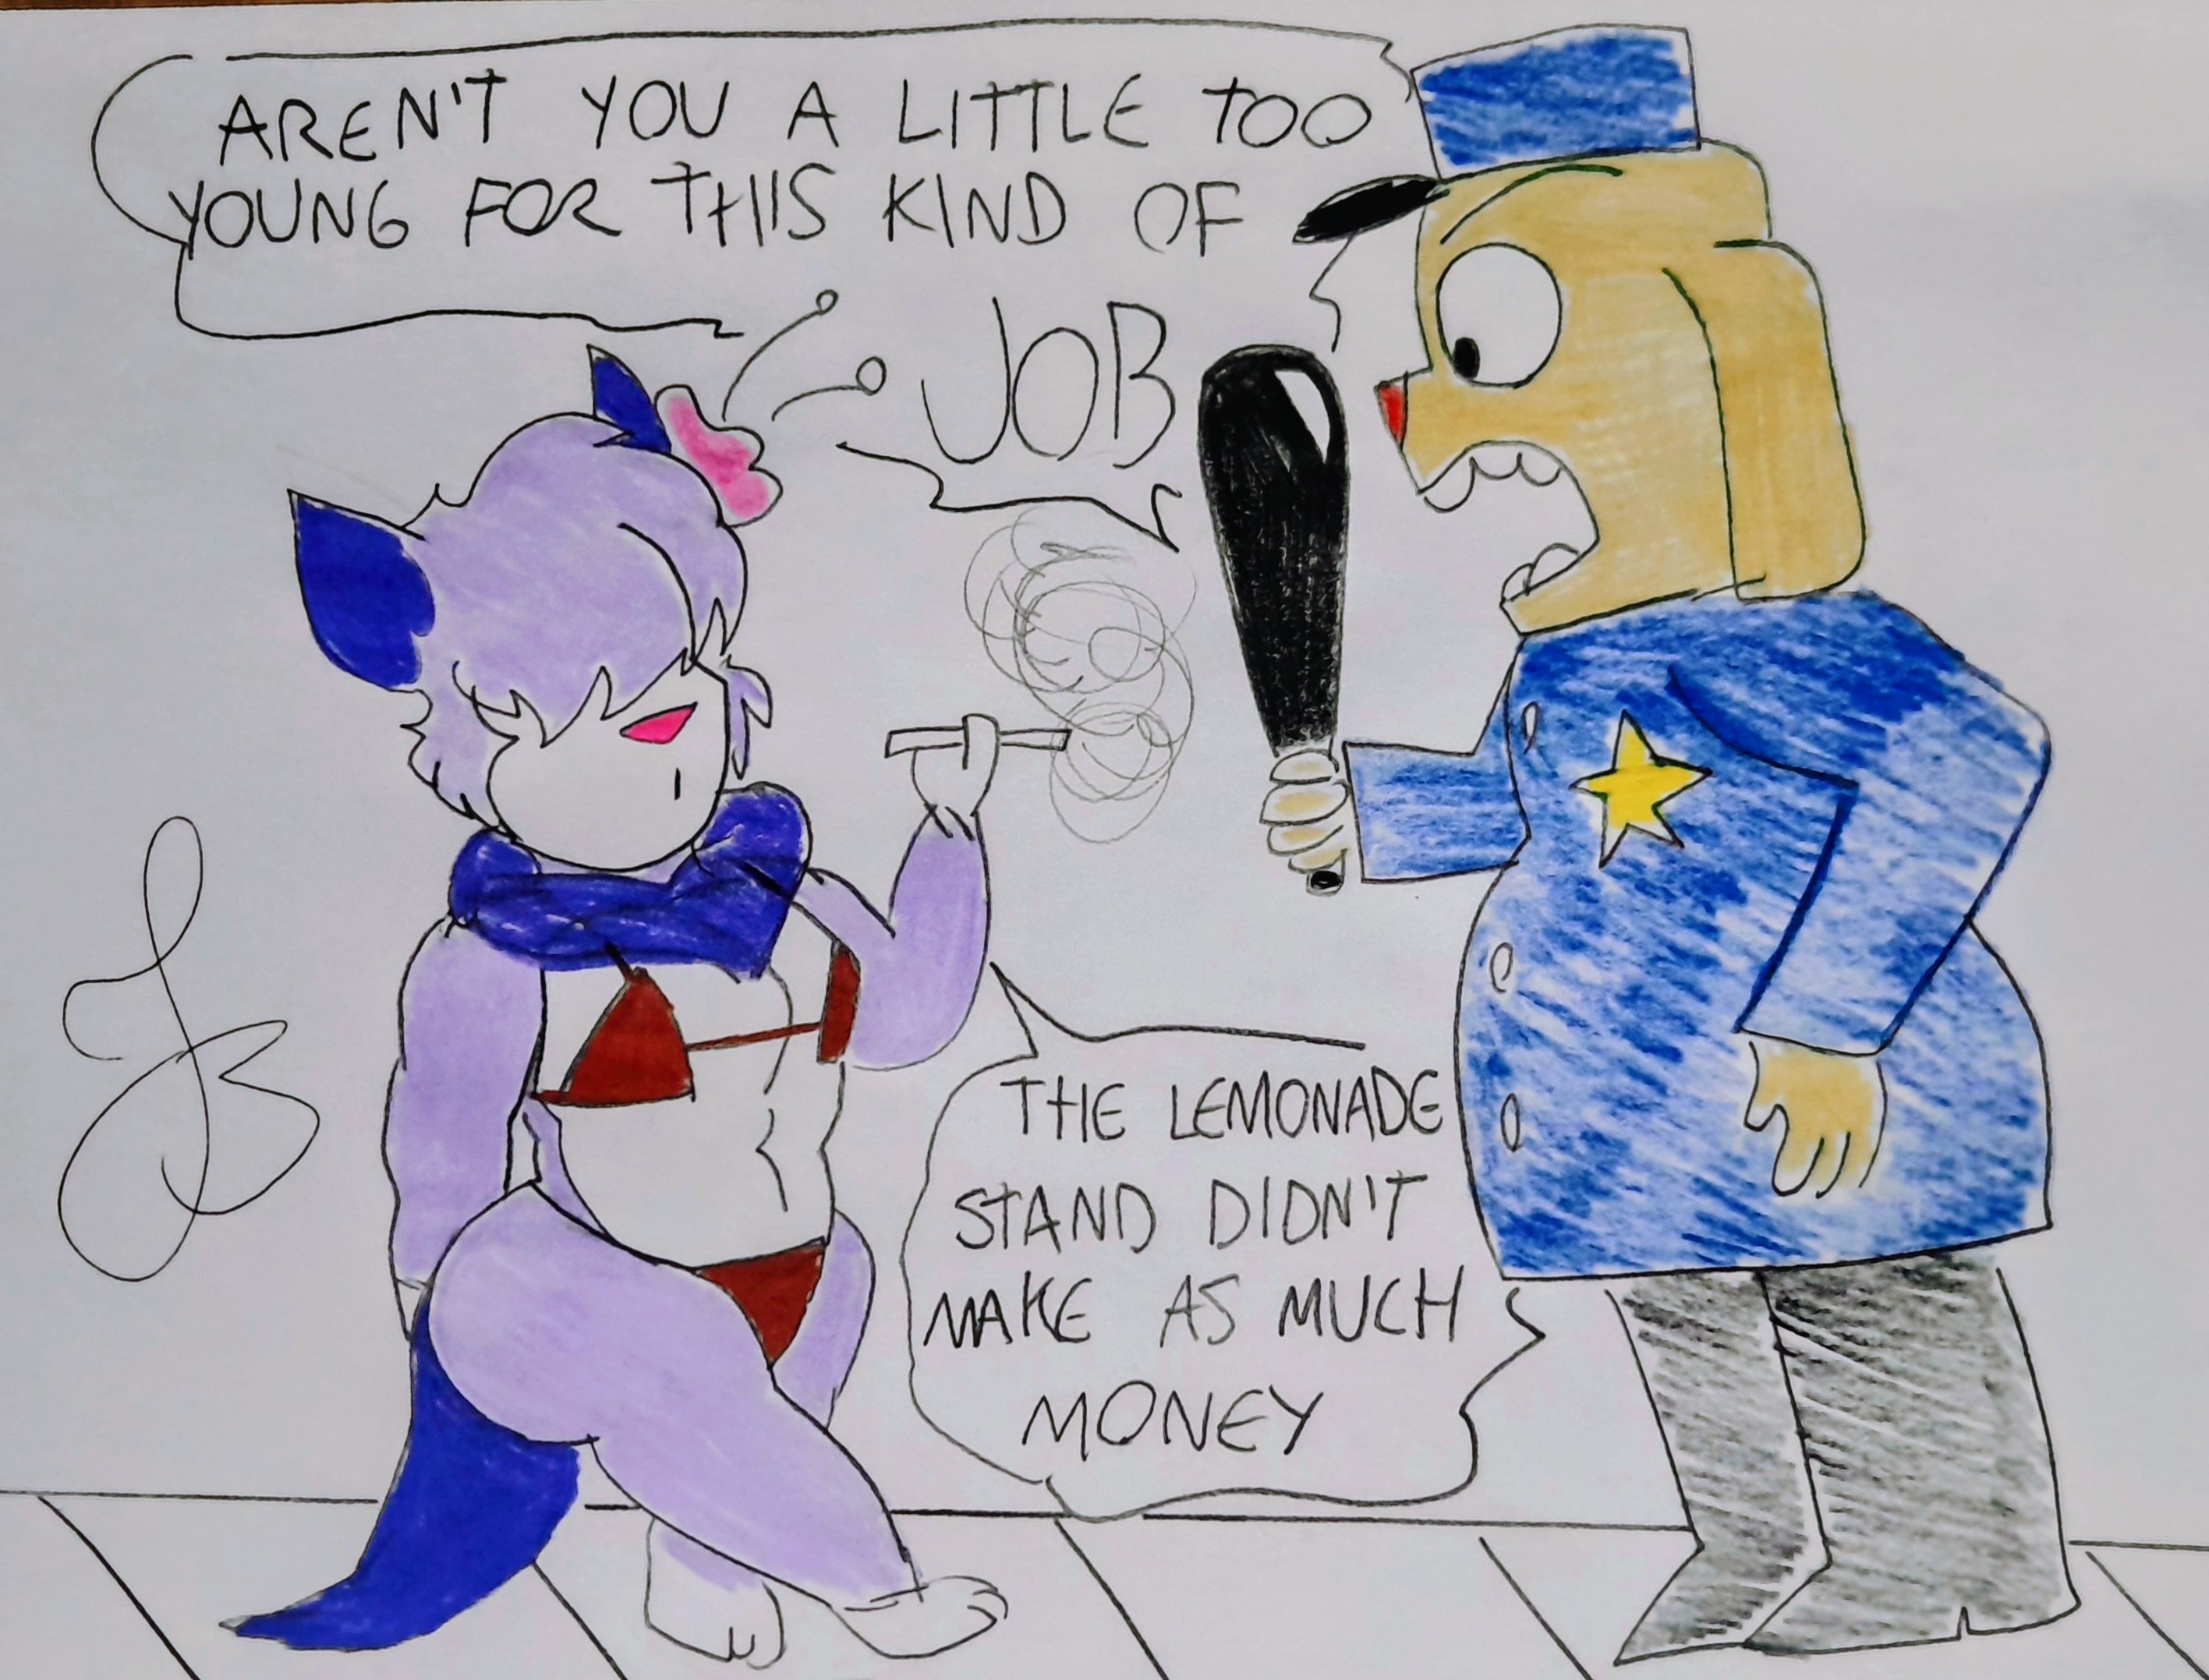 AREN'T YOU A LITTLE TOO
YOUNG FOR THIS KIND OF
JOB
THE LEMONADE
STAND DIDN'T
MAKE AS MUCH
MONEY
JB